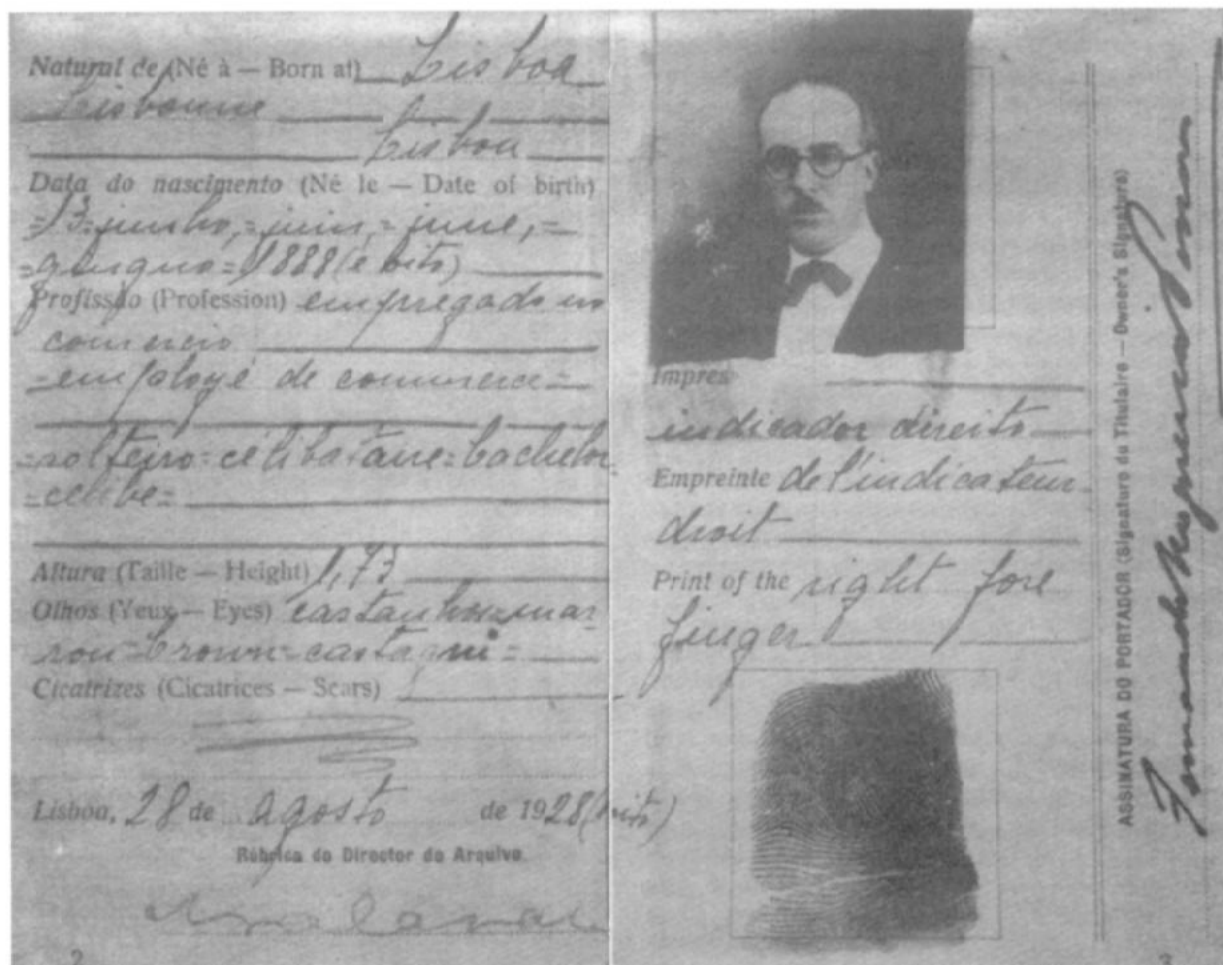 Natural de (Né à — Born at) Lisboa
Lisbonne
Lisbon
Data do nascimento (Né le — Date of birth)
=13=junho,=juin,=june,=
=giugno=1888(e oito)
Profissão (Profession) empregado no
comercio
=employé de commerce=
=solteiro=célibataire=bachelor
=celibe=
Altura (Taille — Height) 1,73
Olhos (Yeux — Eyes) castanhos=mar
ron=brown=castagni=
Cicatrizes (Cicatrices — Scars)
Lisboa, 28 de agosto de 1928(oito)
Rúbrica do Director do Arquivo
2
Impres
indicador direito
Empreinte de l'indicateur
droit
Print of the right fore
finger
ASSINATURA DO PORTADOR (Signature du Titulaire — Owner's Signature)
3